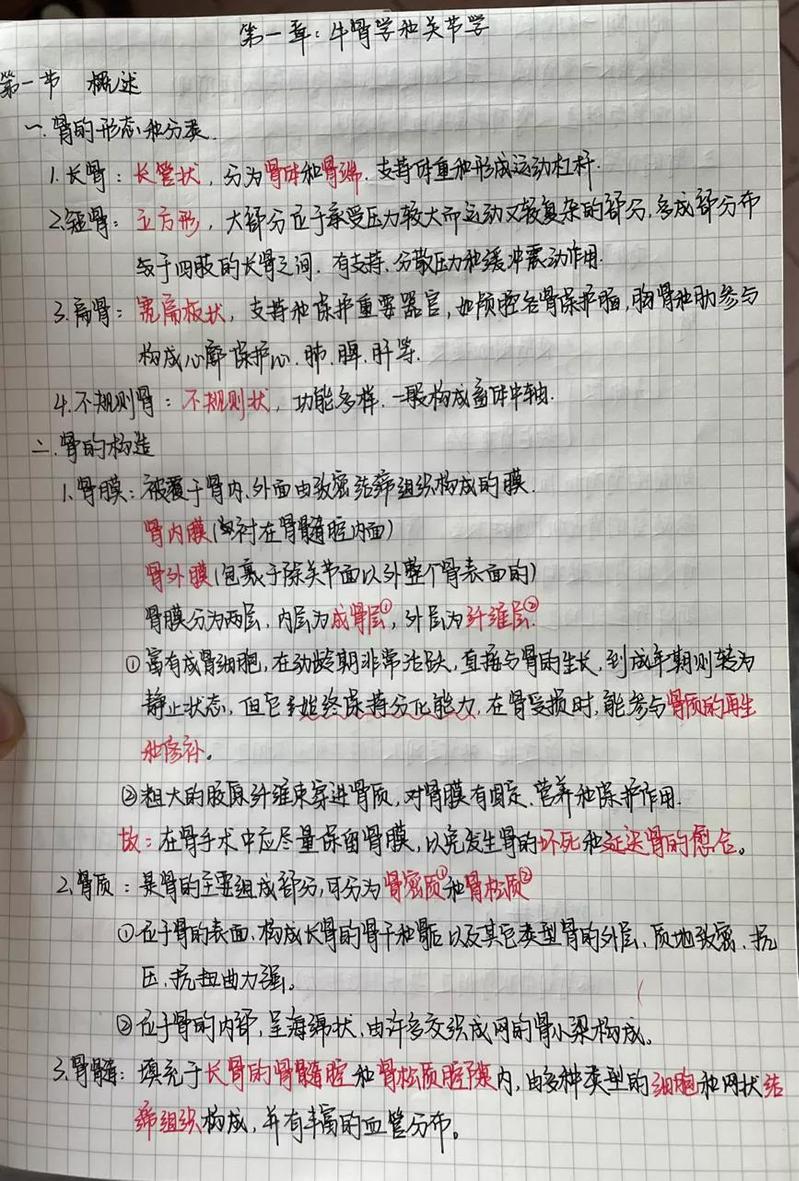 第一章：牛骨学和关节学
第一节 概述
一.骨的形态和分类.
1.长骨：长管状，分为骨体和骨端.支持体重和形成运动杠杆.
2.短骨：立方形，大部分位于承受压力较大而运动又较复杂的部分，多成部分布
于四肢的长骨之间.有支持、分散压力和缓冲震动作用.
3.扁骨：宽扁板状，支持和保护重要器官，如颅腔各骨保护脑，胸骨和肋参与
构成心廓保护心、肺、脾、肝等.
4.不规则骨：不规则状，功能多样.一般构成畜体中轴.
二.骨的构造
1.骨膜：被覆于骨内、外面由致密结缔组织构成的膜.
骨内膜(衬在骨髓腔内面)
骨外膜(包裹于除关节面以外整个骨表面的)
骨膜分为两层，内层为成骨层①，外层为纤维层②.
①富有成骨细胞，在幼龄期非常活跃，直接与骨的生长，到成年期则转为
静止状态，但它始终保持分化能力，在骨受损时，能参与骨质的再生
和修补。
②粗大的胶原纤维束穿进骨质，对骨膜有固定、营养和保护作用.
故：在骨手术中应尽量保留骨膜，以免发生骨的坏死和延迟骨的愈合。
2.骨质：是骨的主要组成部分，可分为骨密质①和骨松质②
①位于骨的表面、构成长骨的骨干和骺以及其它类型骨的外层、质地致密、抗
压、抗扭曲力强。
②位于骨的内部，呈海绵状，由许多交织成网的骨小梁构成。
3.骨髓：填充于长骨的骨髓腔和骨松质腔隙内，由多种类型的细胞和网状结
缔组织构成，并有丰富的血管分布。